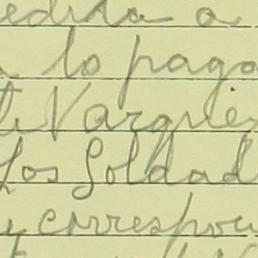 edida a
lo paga
Vargues
Los Soldad
y correspon